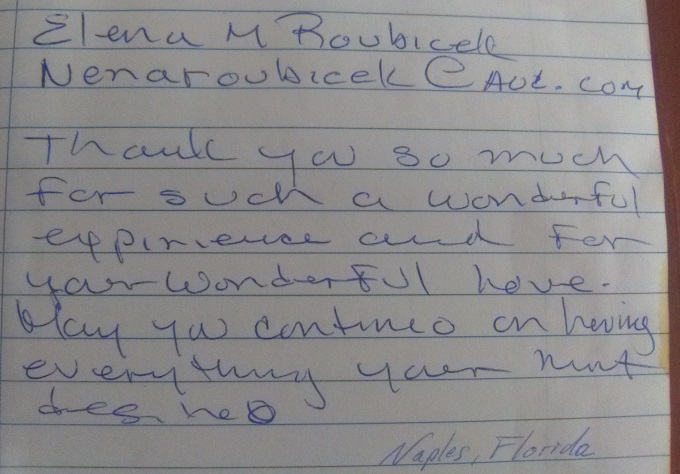 Elena M Roubicek
Nenaroubicek@AOL.com
Thank you so much
for such a wonderful
expirience and for
your wonderful home.
May you continue on having
everything your heart
desires
Naples, Florida